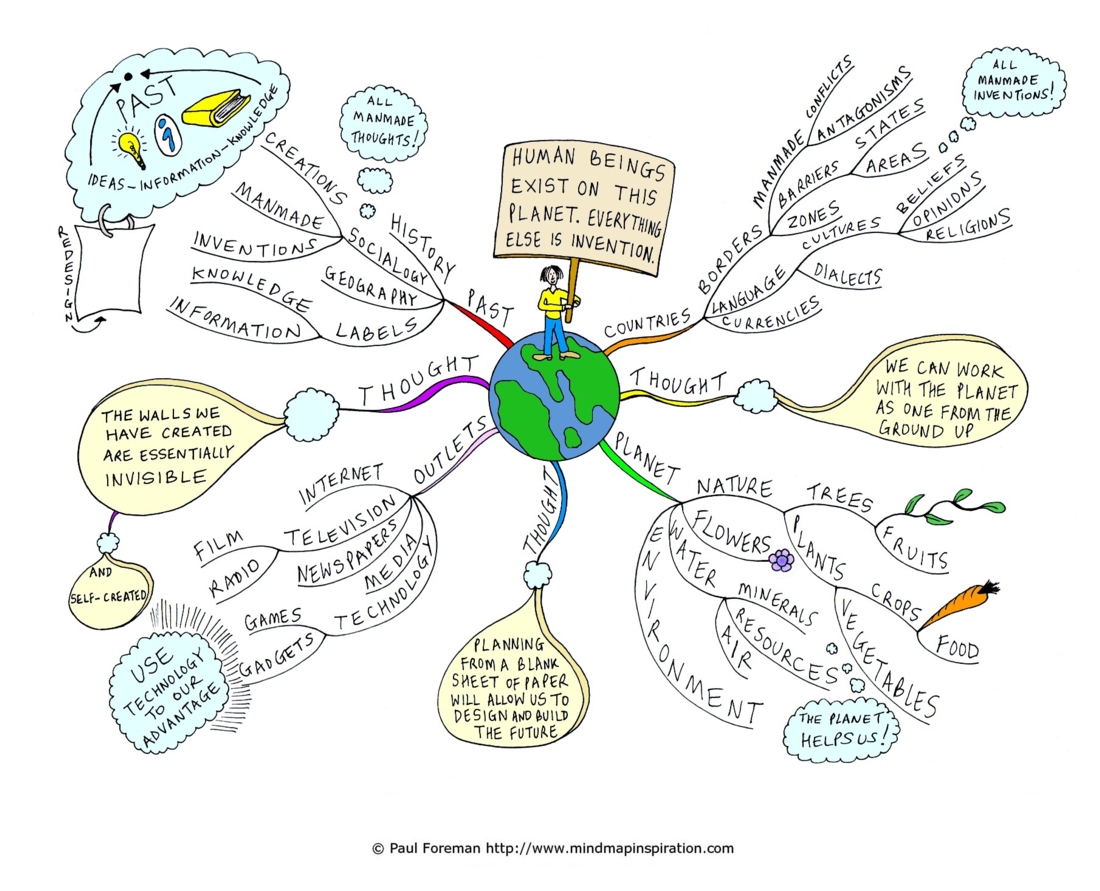 HUMAN BEINGS
EXIST ON THIS
PLANET. EVERYTHING
ELSE IS INVENTION.
PAST
HISTORY
SOCIALOGY
CREATIONS
MANMADE
INVENTIONS
GEOGRAPHY
LABELS
KNOWLEDGE
INFORMATION
ALL
MANMADE
THOUGHTS!
PAST
i
IDEAS-INFORMATION-KNOWLEDGE
REDESIGN
COUNTRIES
BORDERS
MANMADE
CONFLICTS
ANTAGONISMS
BARRIERS
STATES
AREAS
ZONES
LANGUAGE
CULTURES
BELIEFS
OPINIONS
RELIGIONS
DIALECTS
CURRENCIES
ALL
MANMADE
INVENTIONS!
THOUGHT
WE CAN WORK
WITH THE PLANET
AS ONE FROM THE
GROUND UP
PLANET
NATURE
TREES
FRUITS
PLANTS
CROPS
FOOD
VEGETABLES
FLOWERS
WATER
MINERALS
RESOURCES
AIR
ENVIRONMENT
THE PLANET
HELPS US!
THOUGHT
PLANNING
FROM A BLANK
SHEET OF PAPER
WILL ALLOW US TO
DESIGN AND BUILD
THE FUTURE
OUTLETS
INTERNET
TELEVISION
FILM
RADIO
NEWSPAPERS
MEDIA
TECHNOLOGY
GAMES
GADGETS
USE
TECHNOLOGY
TO OUR
ADVANTAGE
THOUGHT
THE WALLS WE
HAVE CREATED
ARE ESSENTIALLY
INVISIBLE
AND
SELF-CREATED
© Paul Foreman http://www.mindmapinspiration.com